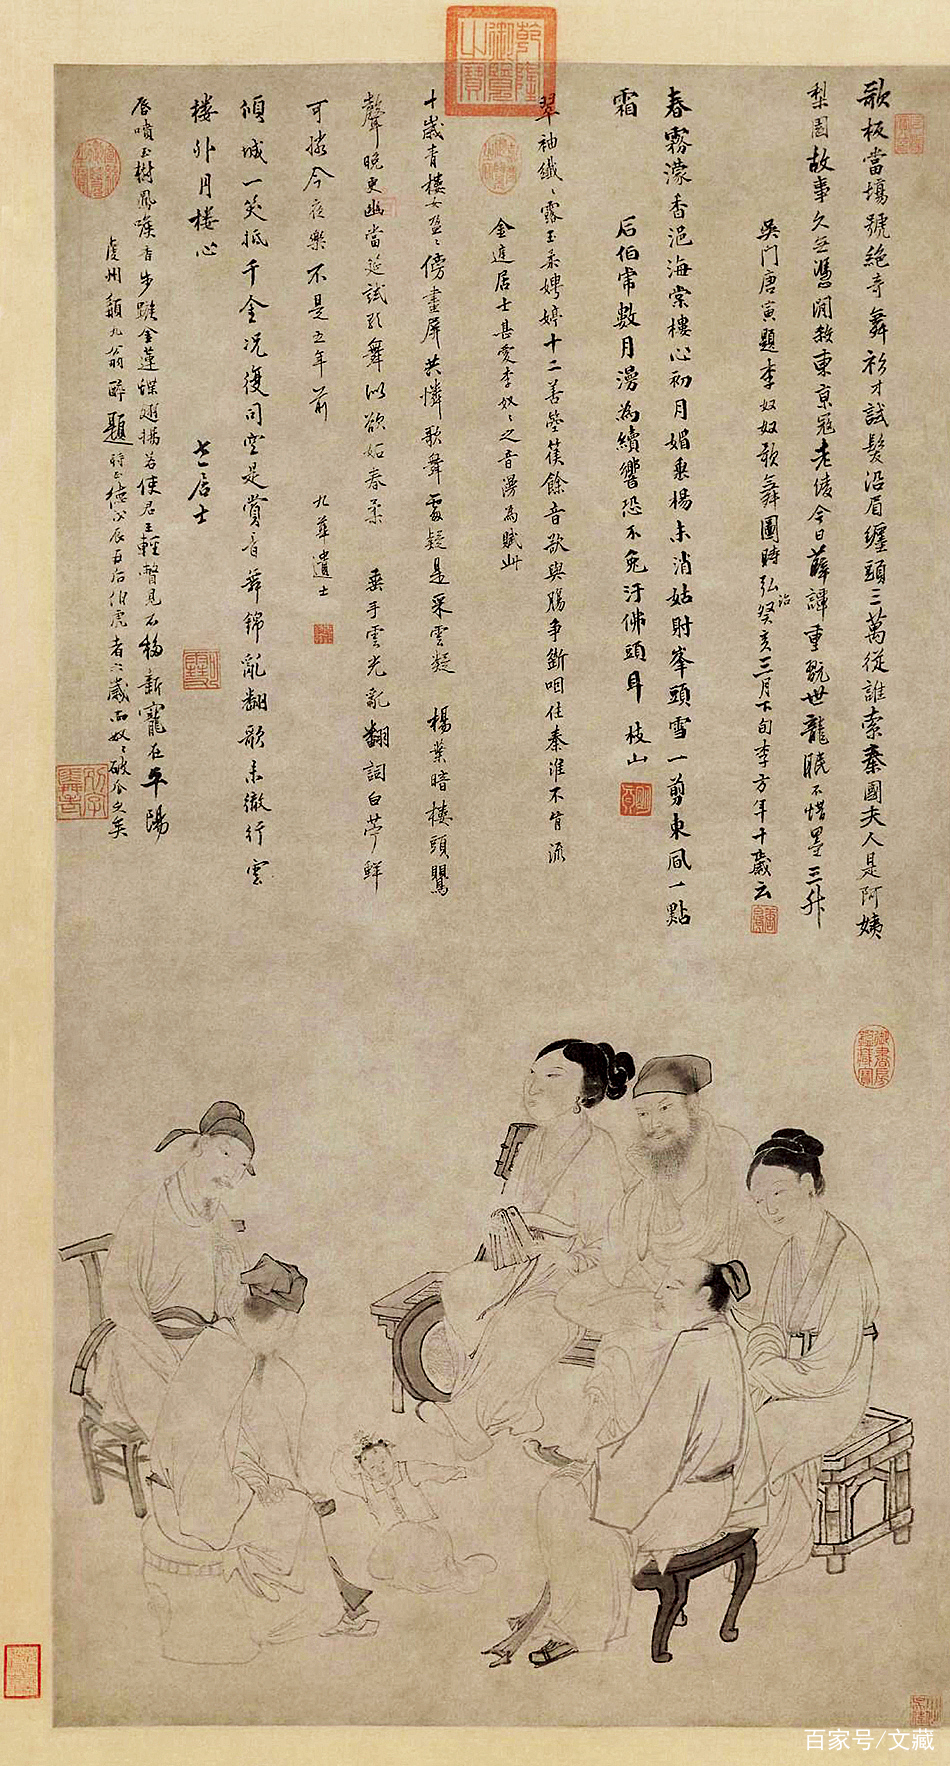 乾隆御覽之寶
歌板當場號絕奇舞衫才試髮沿眉纏頭三萬從誰索秦國夫人是阿姨
梨園故事久无憑閒敘東京冠老倰今日薛譚重翫世龍眠不惜墨三升
吳門唐寅題李奴奴歌舞圖時弘治癸亥三月下旬李方年十歲云
春霧濛香浥海棠樓心初月媚垂楊未消姑射峯頭雪一剪東風一點
霜 后伯常數月漫為續響恐不免汙佛頭耳 枝山
翠袖纖〻露玉柔娉婷十二善箜篌餘音欲與腸爭斷咽住秦淮不肯流
金進居士甚愛李奴〻之音漫為賦此
十歲青樓女盈〻傍畫屏共憐歌舞處疑是采雲凝 楊葉暗樓頭鶯
聲晚更幽當筵試引舞似欲妬春柔 垂手雲光亂翻詞白苧鮮
可憐今夜樂不是五年前 九華遺士
傾城一笑抵千金況復同空是賞音舞錦亂翻歌未徹行雲
樓外月樓心 七居士
唇噴玉樹鳳喉香步蹴金蓮蝶翅揚若使君王輕瞥見不移新寵在平陽
虔州頴九翁醉題時正德戊辰 後伯虎者六歲而奴〻破瓜之矣
御書房鑑藏寶
百家号/文藏